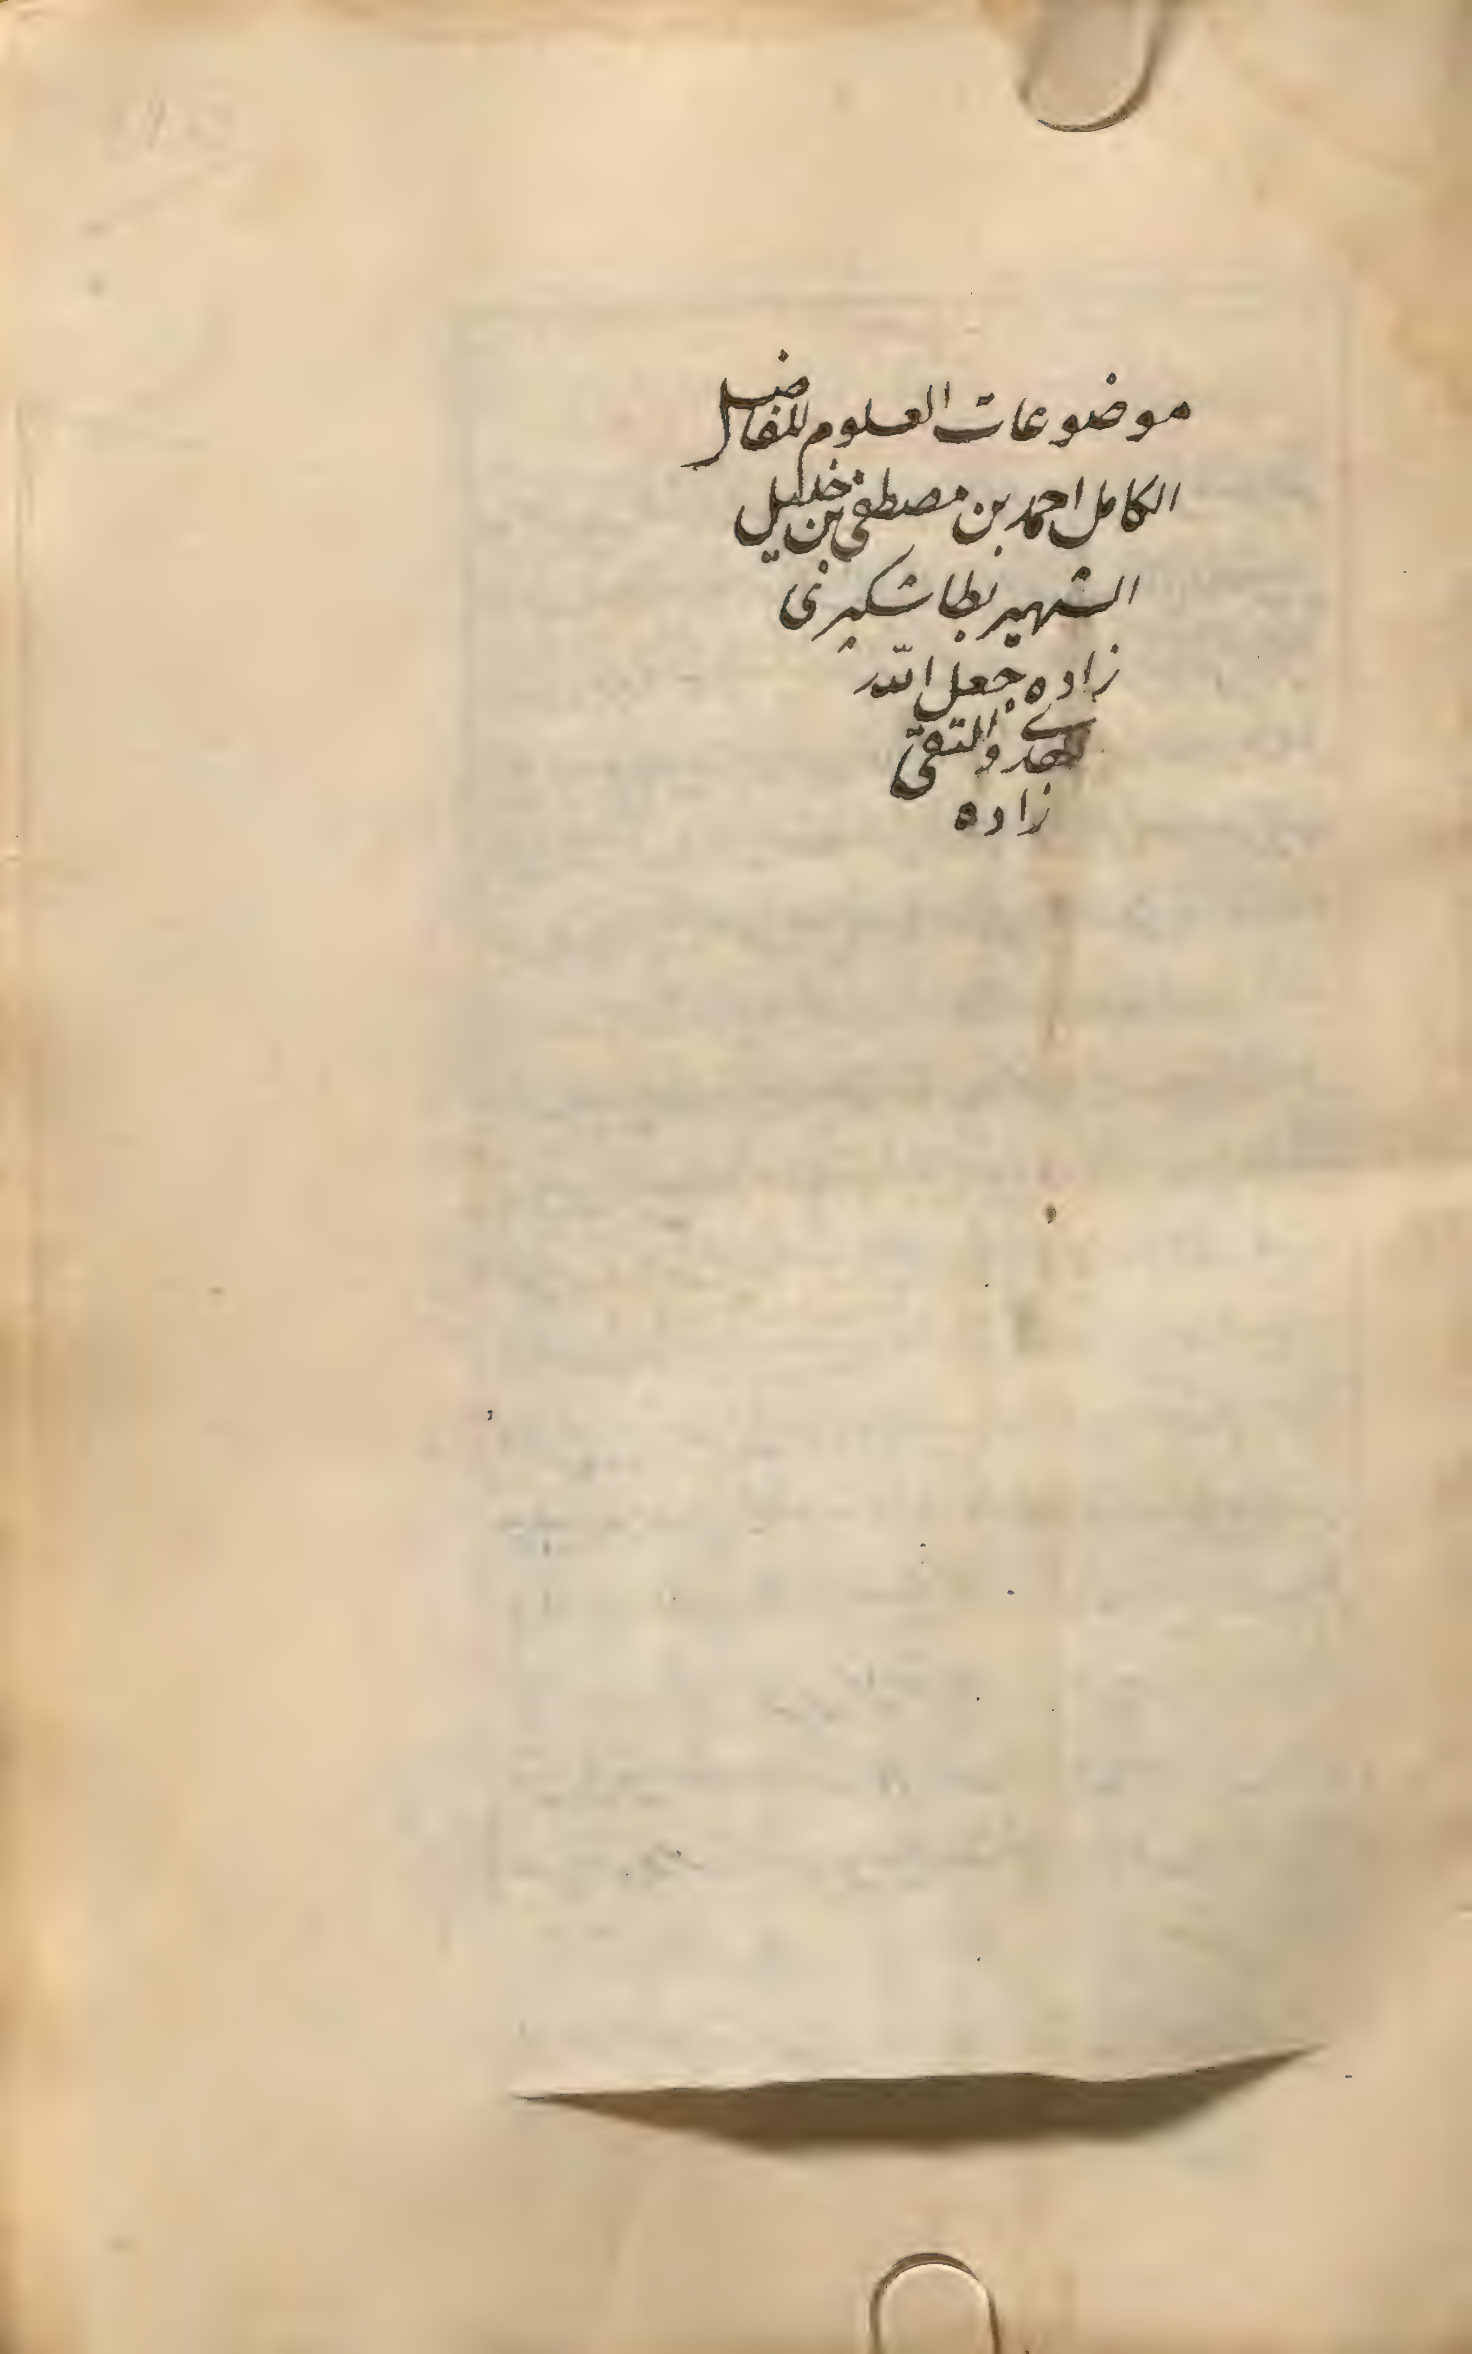 موضوعات العلوم للفاضل
الكامل احمد بن مصطفى بن خليل
الشهير بطاشكبرى
زاده جعل الله
الهدى والتقى
زاده